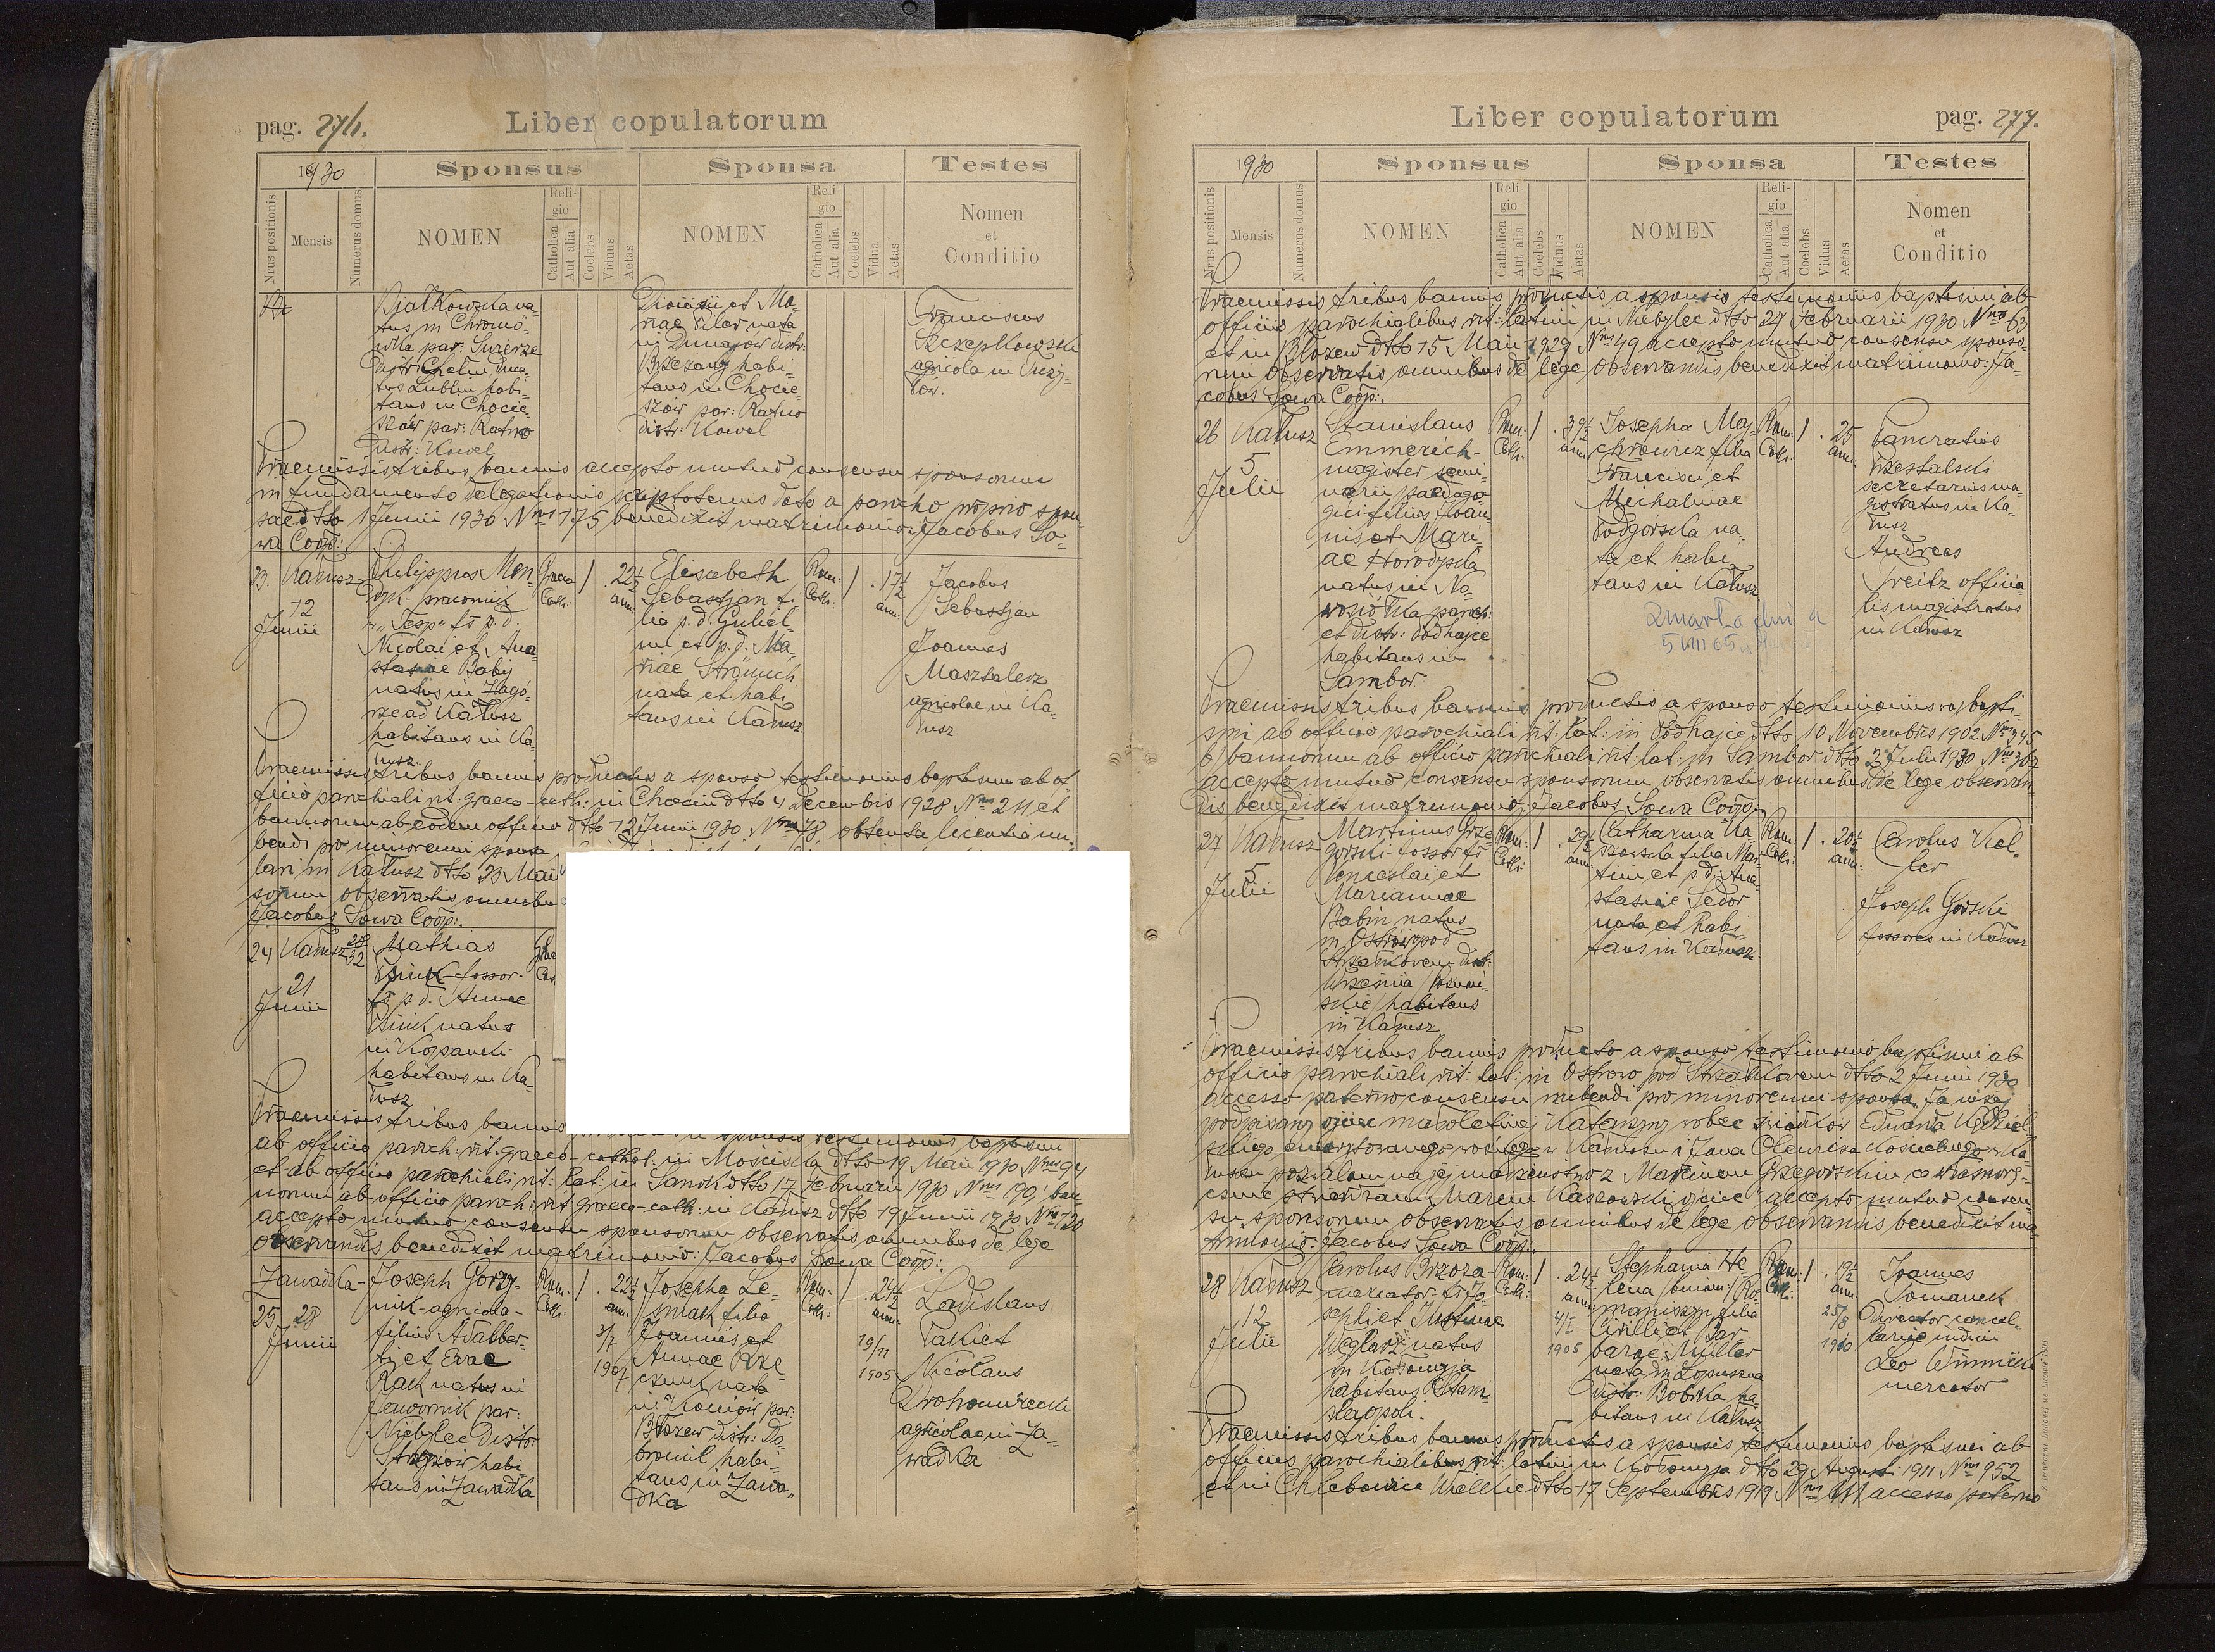 pag. 276.
Liber copulatorum
1930
Sponsus
Sponsa
Testes
Nrus positionis
Mensis
Numerus domus
NOMEN
Religio
Catholica
Aut alia
Coelebs
Viduus
Aetas
NOMEN
Religio
Catholica
Aut alia
Coelebs
Vidua
Aetas
Nomen
et
Conditio
tus in
par: Świerże
distr: Chełm
tus Lublin habi-
tans in Chocie-
szów par: Ratno
distr: Kowel
Dionisii et Ma-
riae nata
in Dunajów distr:
Brzeżany habi-
tans in Chocie-
szów par: Ratno
distr: Kowel
Franciscus
Szczepkowski
agricola in
Praemissis tribus bannis accepto mutuo consensu sponsorum
in fundamento delegationis scriptotenus dato a parocho proprio spon-
sae dtto 1 Junii 1930 Nrus 175 benedixit matrimonio: Jacobus So-
wa Coop:.
23. Kałusz
12
Junii
Philippus Men-
"Tesp" fs p.d.
Nicolai et Ana-
stasiae Babij
natus in Zagó-
rze ad Kałusz
habitans in Ka-
łusz
Graeco
Cath:
22½
ann:
Elisabeth
Sebastjan fi-
lia p.d. Guliel-
mi et p.d. Ma-
riae
nata et habi-
tans in Kałusz
Rom:
Cath:
17½
ann:
Jacobus
Sebastjan
Joannes
Masztalerz
agricolae in Ka-
łusz
Praemissis tribus bannis productis a sponso testimoniis baptismi ab of-
ficio parochiali rit. graeco-cath: in Chocin dtto 4 Decembris 1928 Nrus 211 et
bannorum ab eodem officio dtto 12 Junii 1930 Nrus 78, obtenta licentia nu-
bendi pro minorenni sponsa
lari in Kałusz dtto 23 Maii
sorum observatis omnibus
Jacobus Sowa Coop:.
24 Kałusz
21
Junii
Mathias
fossor
fs p.d. Annae
natus
in Kopanki
habitans in Ka-
łusz
Praemissis tribus bannis
ab officio paroch: rit: graeco-cathol: in Mościska dtto 19 Maii 1930 Nrus 94
et ab officio parochiali rit: lat: in Sanok dtto 17 Februarii 1930 Nrus 190, ban-
norum ab officio paroch: rit graeco-cath: in Kałusz dtto 19 Junii 1930 Nrus 120
accepto mutuo consensu sponsorum observatis omnibus de lege
observandis benedixit matrimonio: Jacobus Sowa Coop:.
Zawadka
25 28
Junii
Joseph
nik-agricola-
filius Adalber-
ti et Evae
Rak natus in
Jawornik par:
Niebylec distr:
Strzyżów habi-
tans in Zawadka
Rom:
Cath:
22½
ann:
3/7
1907
Josepha Le-
śniak filia
Joannis et
Annae Rze-
nata
in par:
Błozew distr: Do-
bromil habi-
tans in Zawa-
dka
Rom:
Cath:
24½
ann:
19/11
1905
Ladislaus
Nicolaus
agricolae in Za-
wadka
Liber copulatorum
pag. 277.
1930
Sponsus
Sponsa
Testes
Nrus positionis
Mensis
Numerus domus
NOMEN
Religio
Catholica
Aut alia
Coelebs
Viduus
Aetas
NOMEN
Religio
Catholica
Aut alia
Coelebs
Vidua
Aetas
Nomen
et
Conditio
Praemissis tribus bannis productis a sponsis testimoniis baptismi ab
officiis parochialibus rit: latini in Niebylec dtto 24 Februarii 1930 Nrus 63
et in Błozew dtto 15 Maii 1929 Nrus 49 accepto mutuo consensu sponso-
rum observatis omnibus de lege observandis benedixit matrimonio: Ja-
cobus Sowa Coop:.
26 Kałusz
5
Julii
Stanislaus
Emmerich-
magister semi-
narii paedago-
gici filius Joan-
nis et Mari-
ae Horodyska
natus in No-
wosiółka paroch:
et distr: Podhajce
habitans in
Sambor.
Rom:
Cath:
39½
ann:
Josepha Maj-
chrowicz filia
Francisci et
Michalinae
Podgórska na-
ta et habi-
tans in Kałusz
Rom:
Cath:
25
ann:
Pancratius
secretarius ma-
gistratus in Ka-
łusz
Andreas
Preitz officia-
lis magistratus
in Kałusz
Zmarł a dnia
5 VIII 65
Praemissis tribus bannis productis a sponso testimoniis a) bapti-
smi ab officio parochiali rit: lat: in Podhajce dtto 10 Novembris 1902 Nrus 345
b) bannorum ab officio parochiali rit: lat: in Sambor dtto 2 Julii 1930 Nrus 367
accepto mutuo consensu sponsorum observatis omnibus de lege observan-
dis benedixit matrimonio: Jacobus Sowa Coop:.
27 Kałusz
5
Julii
Martinus Grze-
gorski-fossor fs
Venceslai et
Mariannae
Babin natus
in Ostrowo pod
Strzałkowem distr:
Września (Poznań-
skie) habitans
in Kałusz
Rom:
Cath:
29½
ann:
Catharina Ka-
szowska filia Mar-
tini et p.d. Ana-
stasiae Fedor
nata et habi-
tans in Kałusz.
Rom:
Cath:
20½
ann:
Carolus
Joseph Górski
fossores in Kałusz
Praemissis tribus bannis producto a sponso testimonio baptismi ab
officio parochiali rit: lat: in Ostrowo pod Strzałkowem dtto 2 Junii 1930
accesso paterno consensu nubendi pro minorenni sponsa "Ja niżej
podpisany ojciec małoletniej Katarzyny wobec świadków Edwarda
emerytowanego woźnego w Kałuszu i Jana kościelnego w Ka-
łuszu pozwalam na jej małżeństwo z Marcinem Grzegorskim co własnorę-
cznie stwierdzam Marcin Kaszowski ojciec" accepto mutuo consen-
su sponsorum observatis omnibus de lege observandis benedixit ma-
trimonio: Jacobus Sowa Coop:.
28 Kałusz
12
Julii
Carolus Brzoza-
mercator fs Jo-
sephi et Justinae
Węglarz natus
in Kołomyja
habitans Stani-
slaopoli.
Rom:
Cath:
24½
ann:
1905
Stephania He-
lena (binom:) Ro-
maniszyn filia
Cirilli et Bar-
barae Müller
nata in Łopuszna
distr: Bobrka ha-
bitans in Kałusz
Rom:
Cath:
19½
ann:
25/8
1910
Joannes
Tomanek
Director cancel-
lariae iudicii
Leo Winnicki
mercator
Praemissis tribus bannis productis a sponsis testimoniis baptismi ab
officiis parochialibus rit: latini in Kołomyja dtto 29 Augusti 1911 Nrus 952
et in Chlebowice Wielkie dtto 17 Septembris 1919 Nrus accesso paterno